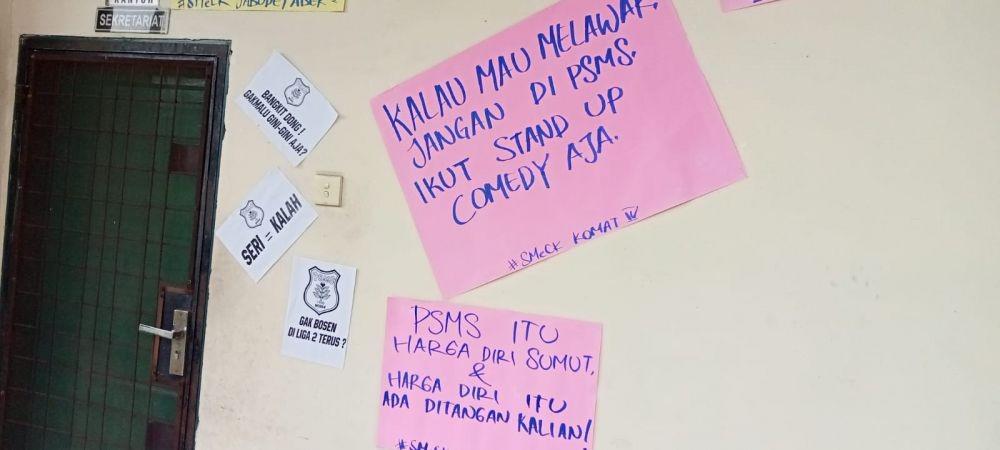 KANTOR
SEKRETARIAT
#SMeCK JABODETABEK
BANGKIT DONG!
GAKMALU GINI-GINI AJA?
SERI = KALAH
GAK BOSEN
DI LIGA 2 TERUS?
KALAU MAU MELAWAK,
JANGAN DI PSMS.
IKUT STAND UP
COMEDY AJA.
#SMeCK KOMAT
PSMS ITU
HARGA DIRI SUMUT.
&
HARGA DIRI ITU
ADA DITANGAN KALIAN!